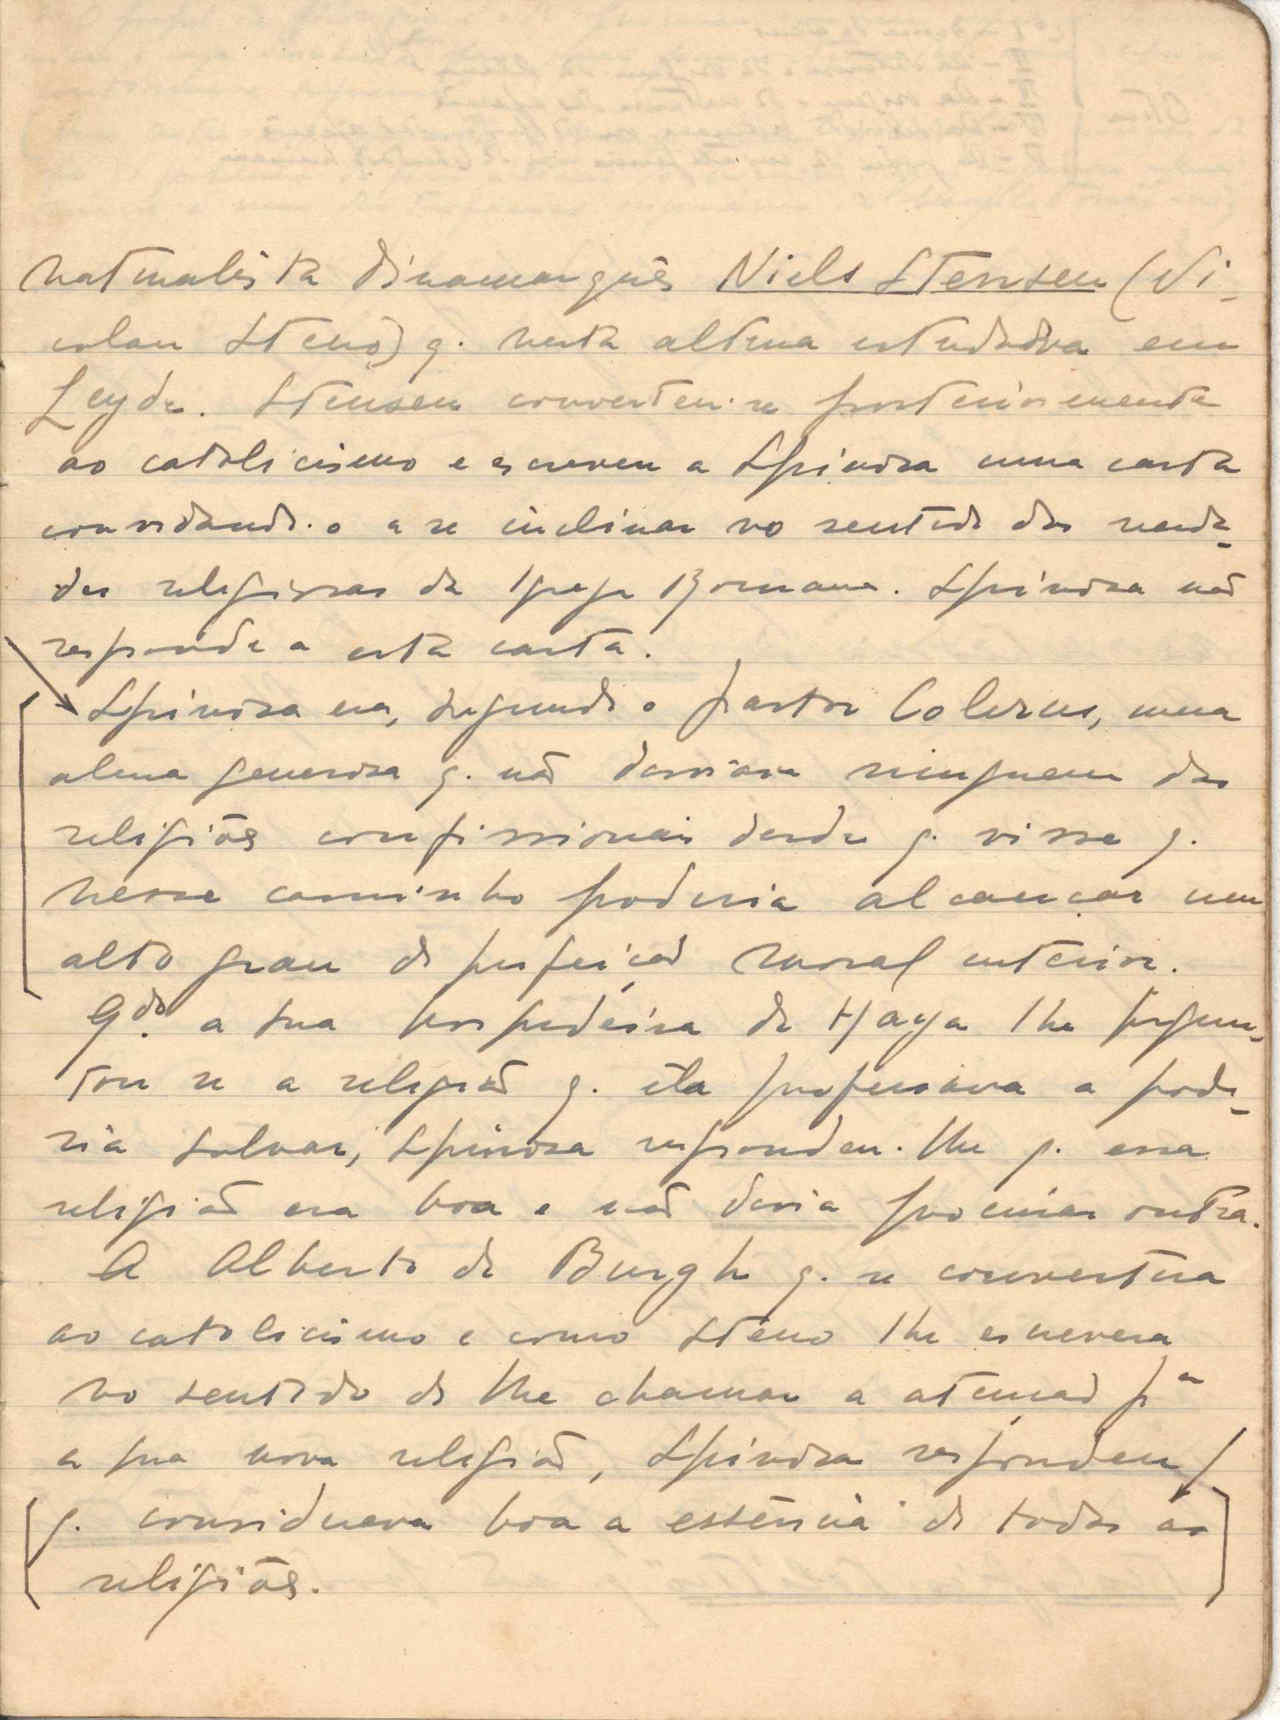 naturalista dinamarquês Niels Stensen (Ni-
colau Steno) q. nesta altura estudava em
Leyde. Stensen converteu-se posteriormente
ao catolicismo e escreveu a Spinosa uma carta
convidando-o a se inclinar no sentido das verda-
des religiosas da Igreja Romana. Spinosa não
responde a esta carta.
Spinosa era, segundo o pastor Colerus, uma
alma generosa q. não desviava ninguem das
religiões confissionais desde q. visse q.
nesse caminho poderia alcançar um
alto grau de perfeição moral interior.
Qdo. a sua hospedeira de Haya lhe pergun-
tou se a religião q. ela professava a pode-
ria salvar, Spinosa respondeu-lhe q. essa
religião era boa e não devia procurar outra.
A Alberto de Burgh q. se convertera
ao catolicismo e como Steno lhe escrevera
no sentido de lhe chamar a atenção pa
a sua nova religião, Spinosa respondeu
q. considerava boa a essência de todas as
religiões.